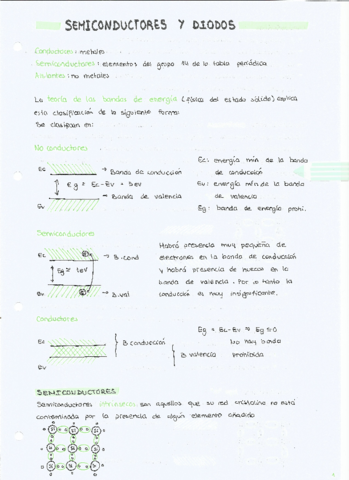 SEMICONDUCTORES Y DIODOS
Conductores: metales.
Semiconductores: elementos del grupo IV de la tabla periódica
Aislantes: no metales
La teoría de las bandas de energía (física del estado sólido) explica
esta clasificación de la siguiente forma:
Se clasifican en:
No conductores
Ec → Banda de conducción
Eg = Ec - Ev ≈ 5eV
Ev → Banda de valencia
Ec: energía mín de la banda
de conducción
Ev: energía mín. de la banda
de valencia
Eg: banda de energía prohi.
Semiconductores
Ec → B. cond
Eg ≈ 1eV
Ev → B. val
Habrá presencia muy pequeña de
electrones en la banda de conducción
y habrá presencia de huecos en la
banda de valencia. Por lo tanto la
conducción es muy insignificante.
Conductores
Ec
B conducción
B valencia
Eg = Ec - Ev ⇒ Eg ≤ 0
No hay banda
prohibida
SEMICONDUCTORES
Semiconductores intrínsecos son aquellos que su red cristalina no está
contaminada por la presencia de algún elemento añadido
Si Si Si
Si Si Si
Si Si Si